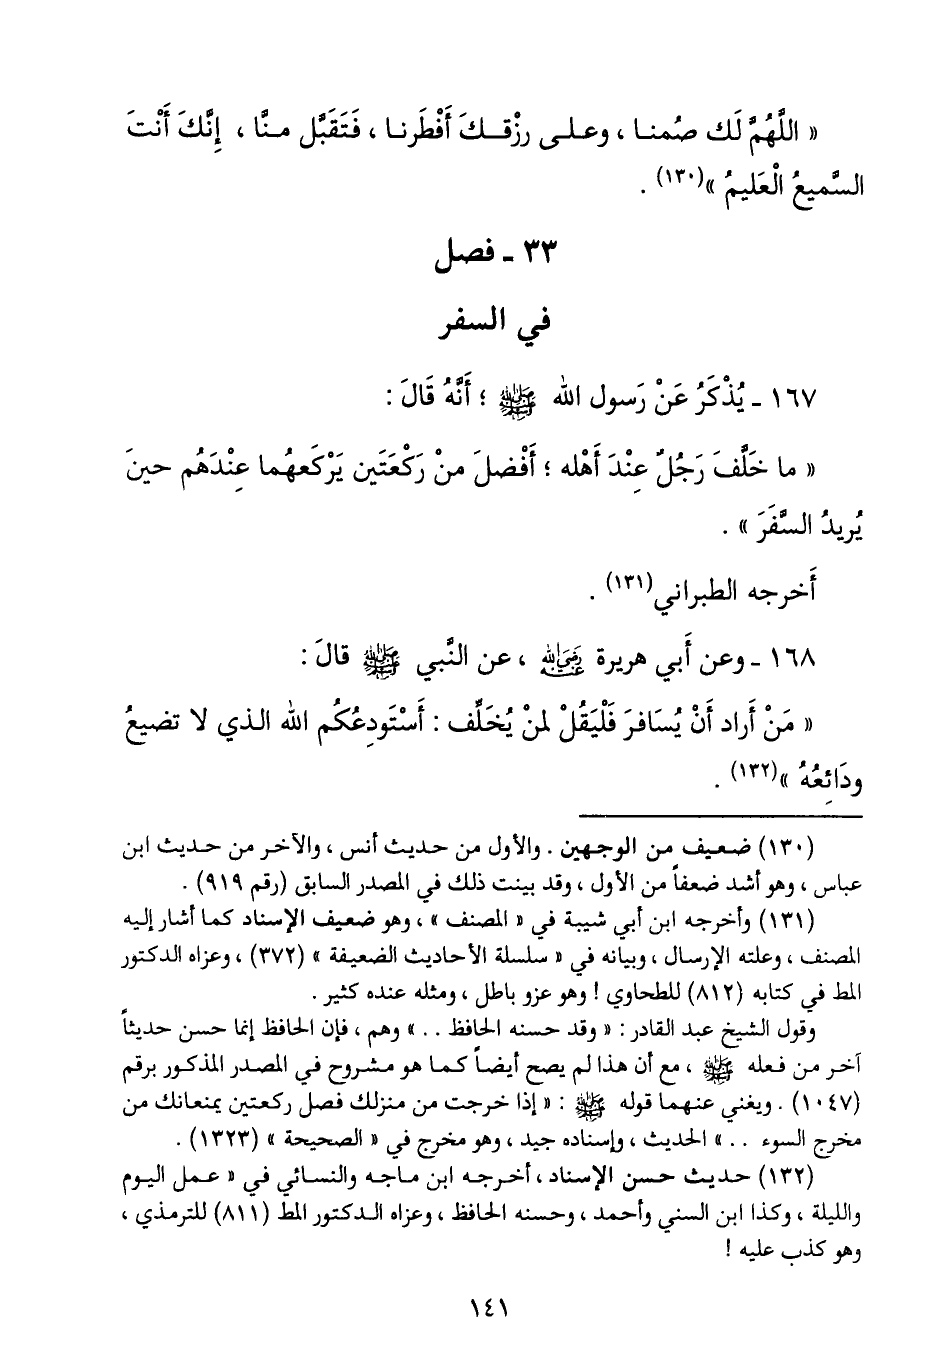 « اللَّهُمَّ لَك صُمنـا ، وعلـى رِزْقِـكَ أَفْطَرنـا ، فَتَقَبَّل مِنَّا ، إِنَّكَ أَنْتَ
السَّميعُ الْعَليمُ »(١٣٠) .
٣٣ ـ فصل
في السفر
١٦٧ ـ يُذْكَرُ عَنْ رَسول الله ﷺ ؛ أَنَّهُ قَالَ :
« ما خَلَّفَ رَجُلٌ عِنْدَ أَهْله ؛ أَفْضلَ منْ رَكْعَتَين يَرْكَعهُما عِنْدَهُم حينَ
يُريدُ السَّفَرَ » .
أَخرجه الطبراني(١٣١) .
١٦٨ ـ وعن أَبي هريرة رضي الله عنه ، عن النَّبي ﷺ قالَ :
« مَنْ أَراد أَنْ يُسَافرَ فَلْيَقُلْ لمنْ يُخَلِّف : أَسْتَودِعُكُم اللهَ الذي لا تضيعُ
ودَائِعُهُ »(١٣٢) .
(١٣٠) ضعيف من الوجهين . والأول من حديث أنس ، والآخر من حديث ابن
عباس ، وهو أشد ضعفاً من الأول ، وقد بينت ذلك في المصدر السابق (رقم ٩١٩) .
(١٣١) وأخرجه ابن أبي شيبة في « المصنف » ، وهو ضعيف الإسناد كما أشار إليه
المصنف ، وعلته الإرسال ، وبيانه في « سلسلة الأحاديث الضعيفة » (٣٧٢) ، وعزاه الدكتور
المط في كتابه (٨١٢) للطحاوي ! وهو عزو باطل ، ومثله عنده كثير .
وقول الشيخ عبد القادر : « وقد حسنه الحافظ . . » وهم ، فإن الحافظ إنما حسن حديثاً
آخر من فعله ﷺ ، مع أن هذا لم يصح أيضاً كما هو مشروح في المصدر المذكور برقم
(١٠٤٧) . ويغني عنهما قوله ﷺ : « إذا خرجت من منزلك فصل ركعتين يمنعانك من
مخرج السوء . . » الحديث ، وإسناده جيد ، وهو مخرج في « الصحيحة » (١٣٢٣) .
(١٣٢) حديث حسن الإسناد ، أخرجه ابن ماجه والنسائي في « عمل اليوم
والليلة ، وكذا ابن السني وأحمد ، وحسنه الحافظ ، وعزاه الدكتور المط (٨١١) للترمذي ،
وهو كذب عليه !
١٤١